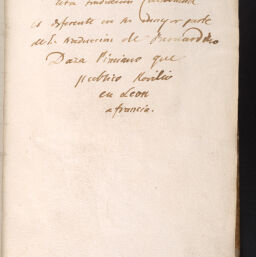 esta traduccion
es diferente en la mayor parte
de la traduccion de Bernardino
Daza Pinciano que
publico Rovilio
en Leon
a francia.